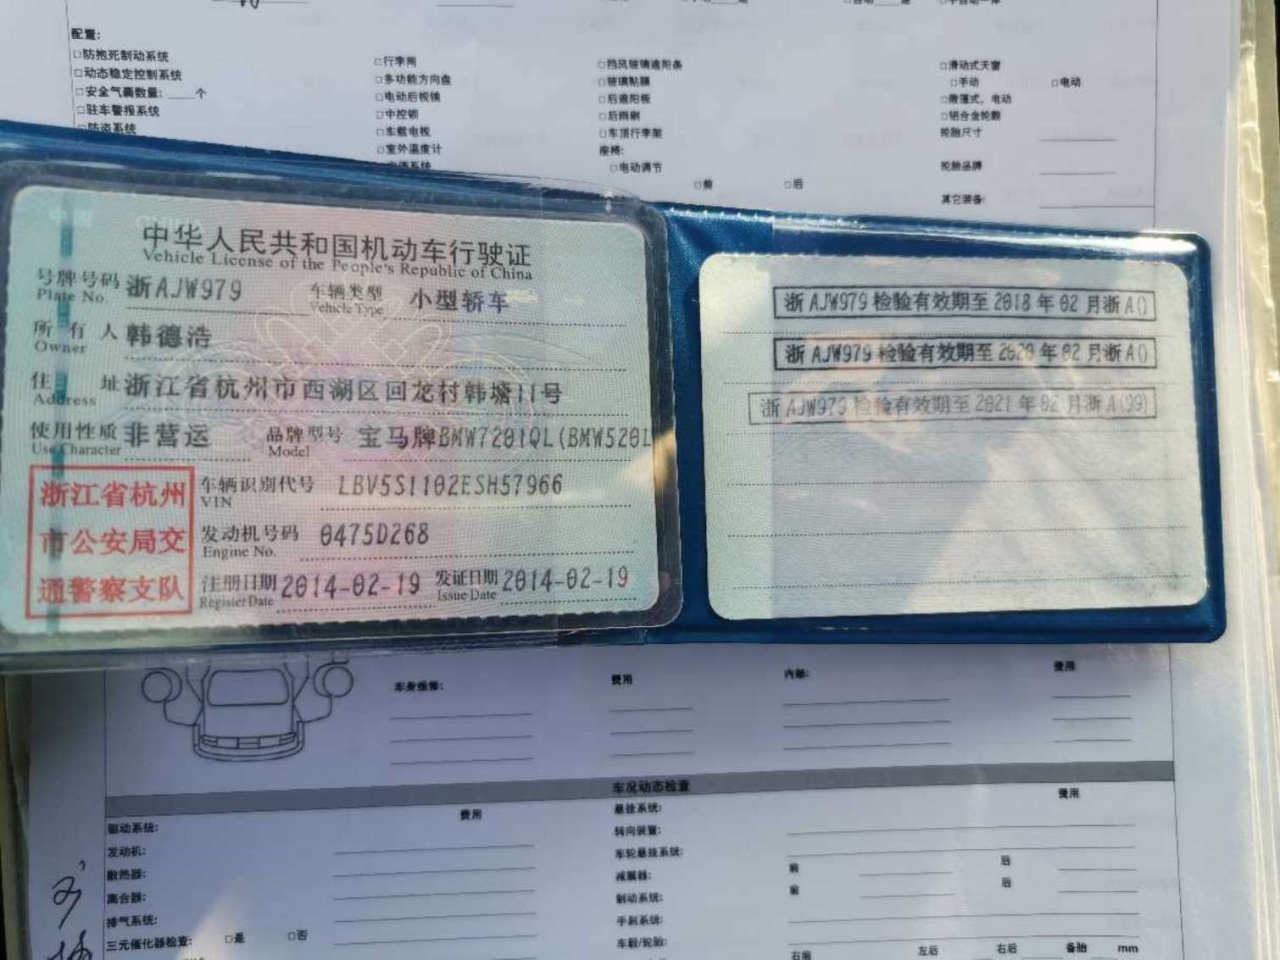 配置:
□防抱死制动系统 □行李网 □挡风玻璃遮阳条 □滑动式天窗
□动态稳定控制系统 □多功能方向盘 □玻璃贴膜 □手动 □电动
□安全气囊数量:____个 □电动后视镜 □后遮阳板 □敞篷式，电动
□驻车警报系统 □中控锁 □后雨刷 □铝合金轮毂
□防盗系统 □车载电视 □车顶行李架 轮胎尺寸
□室外温度计 座椅:
□电动调节 轮胎品牌
□前 □后
其它装备:
中华人民共和国机动车行驶证
Vehicle License of the People's Republic of China
号牌号码 浙AJW979 车辆类型 小型轿车
Plate No. Vehicle Type
所有人 韩德浩
Owner
住址 浙江省杭州市西湖区回龙村韩塘11号
Address
使用性质 非营运 品牌型号 宝马牌BMW7201QL(BMW520L
Use Character Model
浙江省杭州
市公安局交
通警察支队
车辆识别代号 LBV5S1102ESH57966
VIN
发动机号码 0475D268
Engine No.
注册日期 2014-02-19 发证日期 2014-02-19
Register Date Issue Date
浙AJW979检验有效期至2018年02月浙A()
浙AJW979检验有效期至2020年02月浙A()
浙AJW979检验有效期至2021年02月浙A(99)
车身维修: 费用 内部: 费用
车况动态检查
费用 费用
驱动系统: 悬挂系统:
发动机: 转向装置:
散热器: 车轮悬挂系统:
离合器: 减震器: 前 后
排气系统: 制动系统: 前 后
三元催化器检查: □是 □否 手刹系统:
车毂/轮胎: 右前 左后 右后 备胎 mm